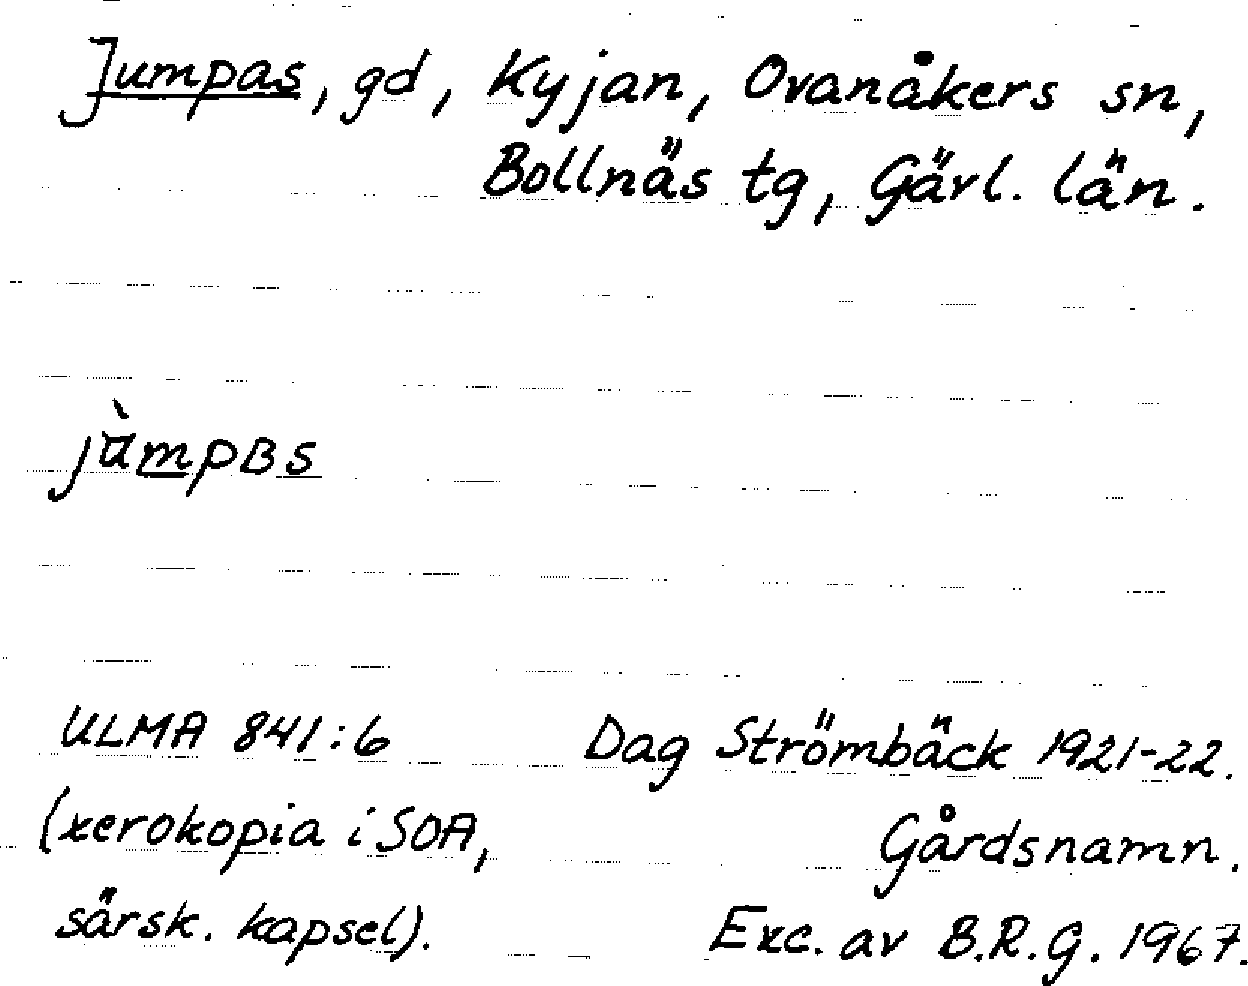 Jumpas, gd, Kyjan, Ovanåkers sn,
Bollnäs tg, Gävl. län.
jùmpʙs
ULMA 841:6 Dag Strömbäck 1921-22.
(xerokopia i SOA, Gårdsnamn.
särsk. kapsel). Exc. av B.R.G. 1967.